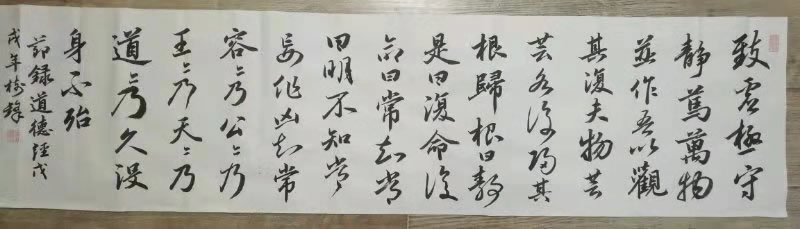 致虚極守
静篤萬物
並作吾以觀
其復夫物芸
芸各復歸其
根歸根曰静
是曰復命復
命曰常知常
曰明不知常
妄作凶知常
容〻乃公〻乃
王〻乃天〻乃
道〻乃久没
身不殆
節録道德經戊
戌年